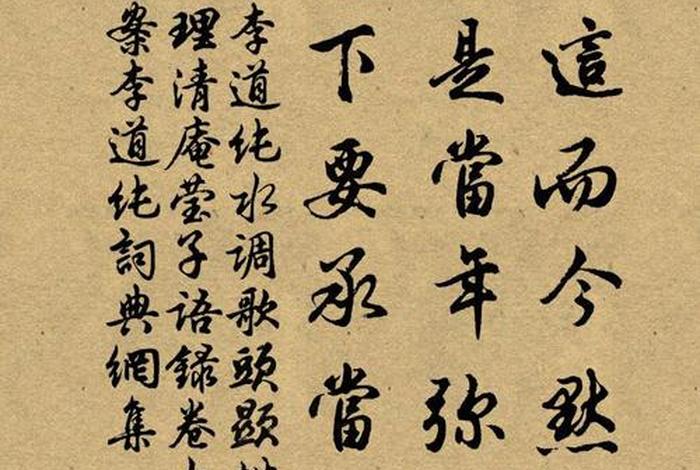 這而今默
是當年弥
下要承當
李道纯水调歌頭题
理清庵莹子語録卷
案李道纯詞典網集